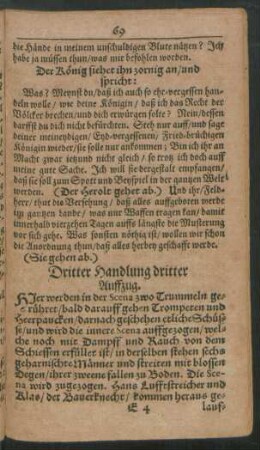 69
die Hände in meinem unschuldigen Blute nätzen? Ich
habe ja müssen thun/was mir befohlen worden.
Der König siehet ihn zornig an/und
spricht:
Was? Meynst du/daß ich auch so ehr-vergessen han-
deln wolle/ wie deine Königin/ daß ich das Recht der
Völcker brechen/und dich erwürgen solte? Nein/dessen
darffst du dich nicht befürchten. Steh nur auff/und sage
deiner meineydigen/ Eyd-vergessenen/ Fried-brüchigen
Königin wieder/sie solle nur ankommen; Bin ich ihr an
Macht zwar ietzund nicht gleich/ so trotz ich doch auff
meine gute Sache. Ich will sie dergestalt empfangen/
daß sie soll zum Spott und Beyspiel in der gantzen Welt
werden. (Der Herolt gehet ab.) Und ihr/Feld-
here/ thut die Versehung/ daß alles auffgeboten werde
im gantzen Lande/ was nur Waffen tragen kan/damit
innerhalb vierzehen Tagen auffs längste die Musterung
vor sich gehe. Was sonsten nöthig ist/ wollen wir schon
die Anordnung thun/daß alles herbey geschafft werde.
(Sie gehen ab.)
Dritter Handlung dritter
Auffzug.
HIer werden in der Scena zwo Trummeln ge-
rühret/bald darauff gehen Trompeten und
Heerpaucken/darnach geschehen etliche Schüs-
se/und wird die innere Scena auffgezogen/ wel-
che noch mit Dampff und Rauch von dem
Schiessen erfüllet ist/ in derselben stehen sechs
geharnischte Männer und streiten mit blossen
Degen/ihrer zweene fallen zu Boden. Die Sce-
na wird zugezogen. Hans Lufftstreicher und
Klas/ der Bauerknecht/ kommen heraus ge-
E 4 lauf-